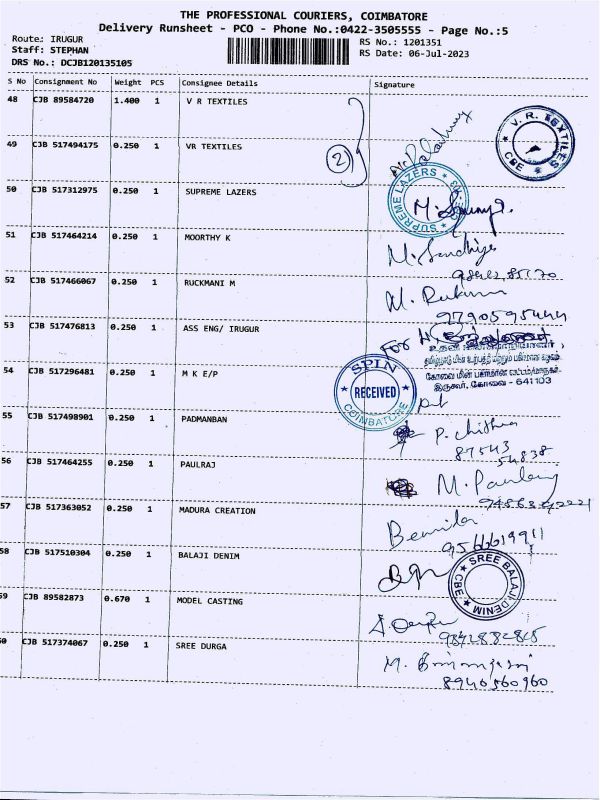 THE PROFESSIONAL COURIERS, COIMBATORE
Delivery Runsheet - PCO - Phone No.:0422-3505555 - Page No.:5
Route: IRUGUR
Staff: STEPHAN
DRS No.: DCJB120135105
RS No.: 1201351
RS Date: 06-Jul-2023
S No Consignment No Weight PCS Consignee Details Signature
48 CJB 89584720 1.400 1 V R TEXTILES
V. R. TEXTILES
CBE
49 CJB 517494175 0.250 1 VR TEXTILES
2
50 CJB 517312975 0.250 1 SUPREME LAZERS
SUPREME LAZERS
51 CJB 517464214 0.250 1 MOORTHY K
M. Sandhiya
52 CJB 517466067 0.250 1 RUCKMANI M
M. Rukmani
9790595444
53 CJB 517476813 0.250 1 ASS ENG/ IRUGUR
For
இருகூர், கோவை - 641103
54 CJB 517296481 0.250 1 M K E/P
SPIN
RECEIVED
COIMBATORE
55 CJB 517498901 0.250 1 PADMANBAN
P. Chithra
87543
54838
56 CJB 517464255 0.250 1 PAULRAJ
M. Paulraj
57 CJB 517363052 0.250 1 MADURA CREATION
9566619911
58 CJB 517510304 0.250 1 BALAJI DENIM
SREE BALAJI DENIM
CBE
59 CJB 89582873 0.670 1 MODEL CASTING
60 CJB 517374067 0.250 1 SREE DURGA
8940560960